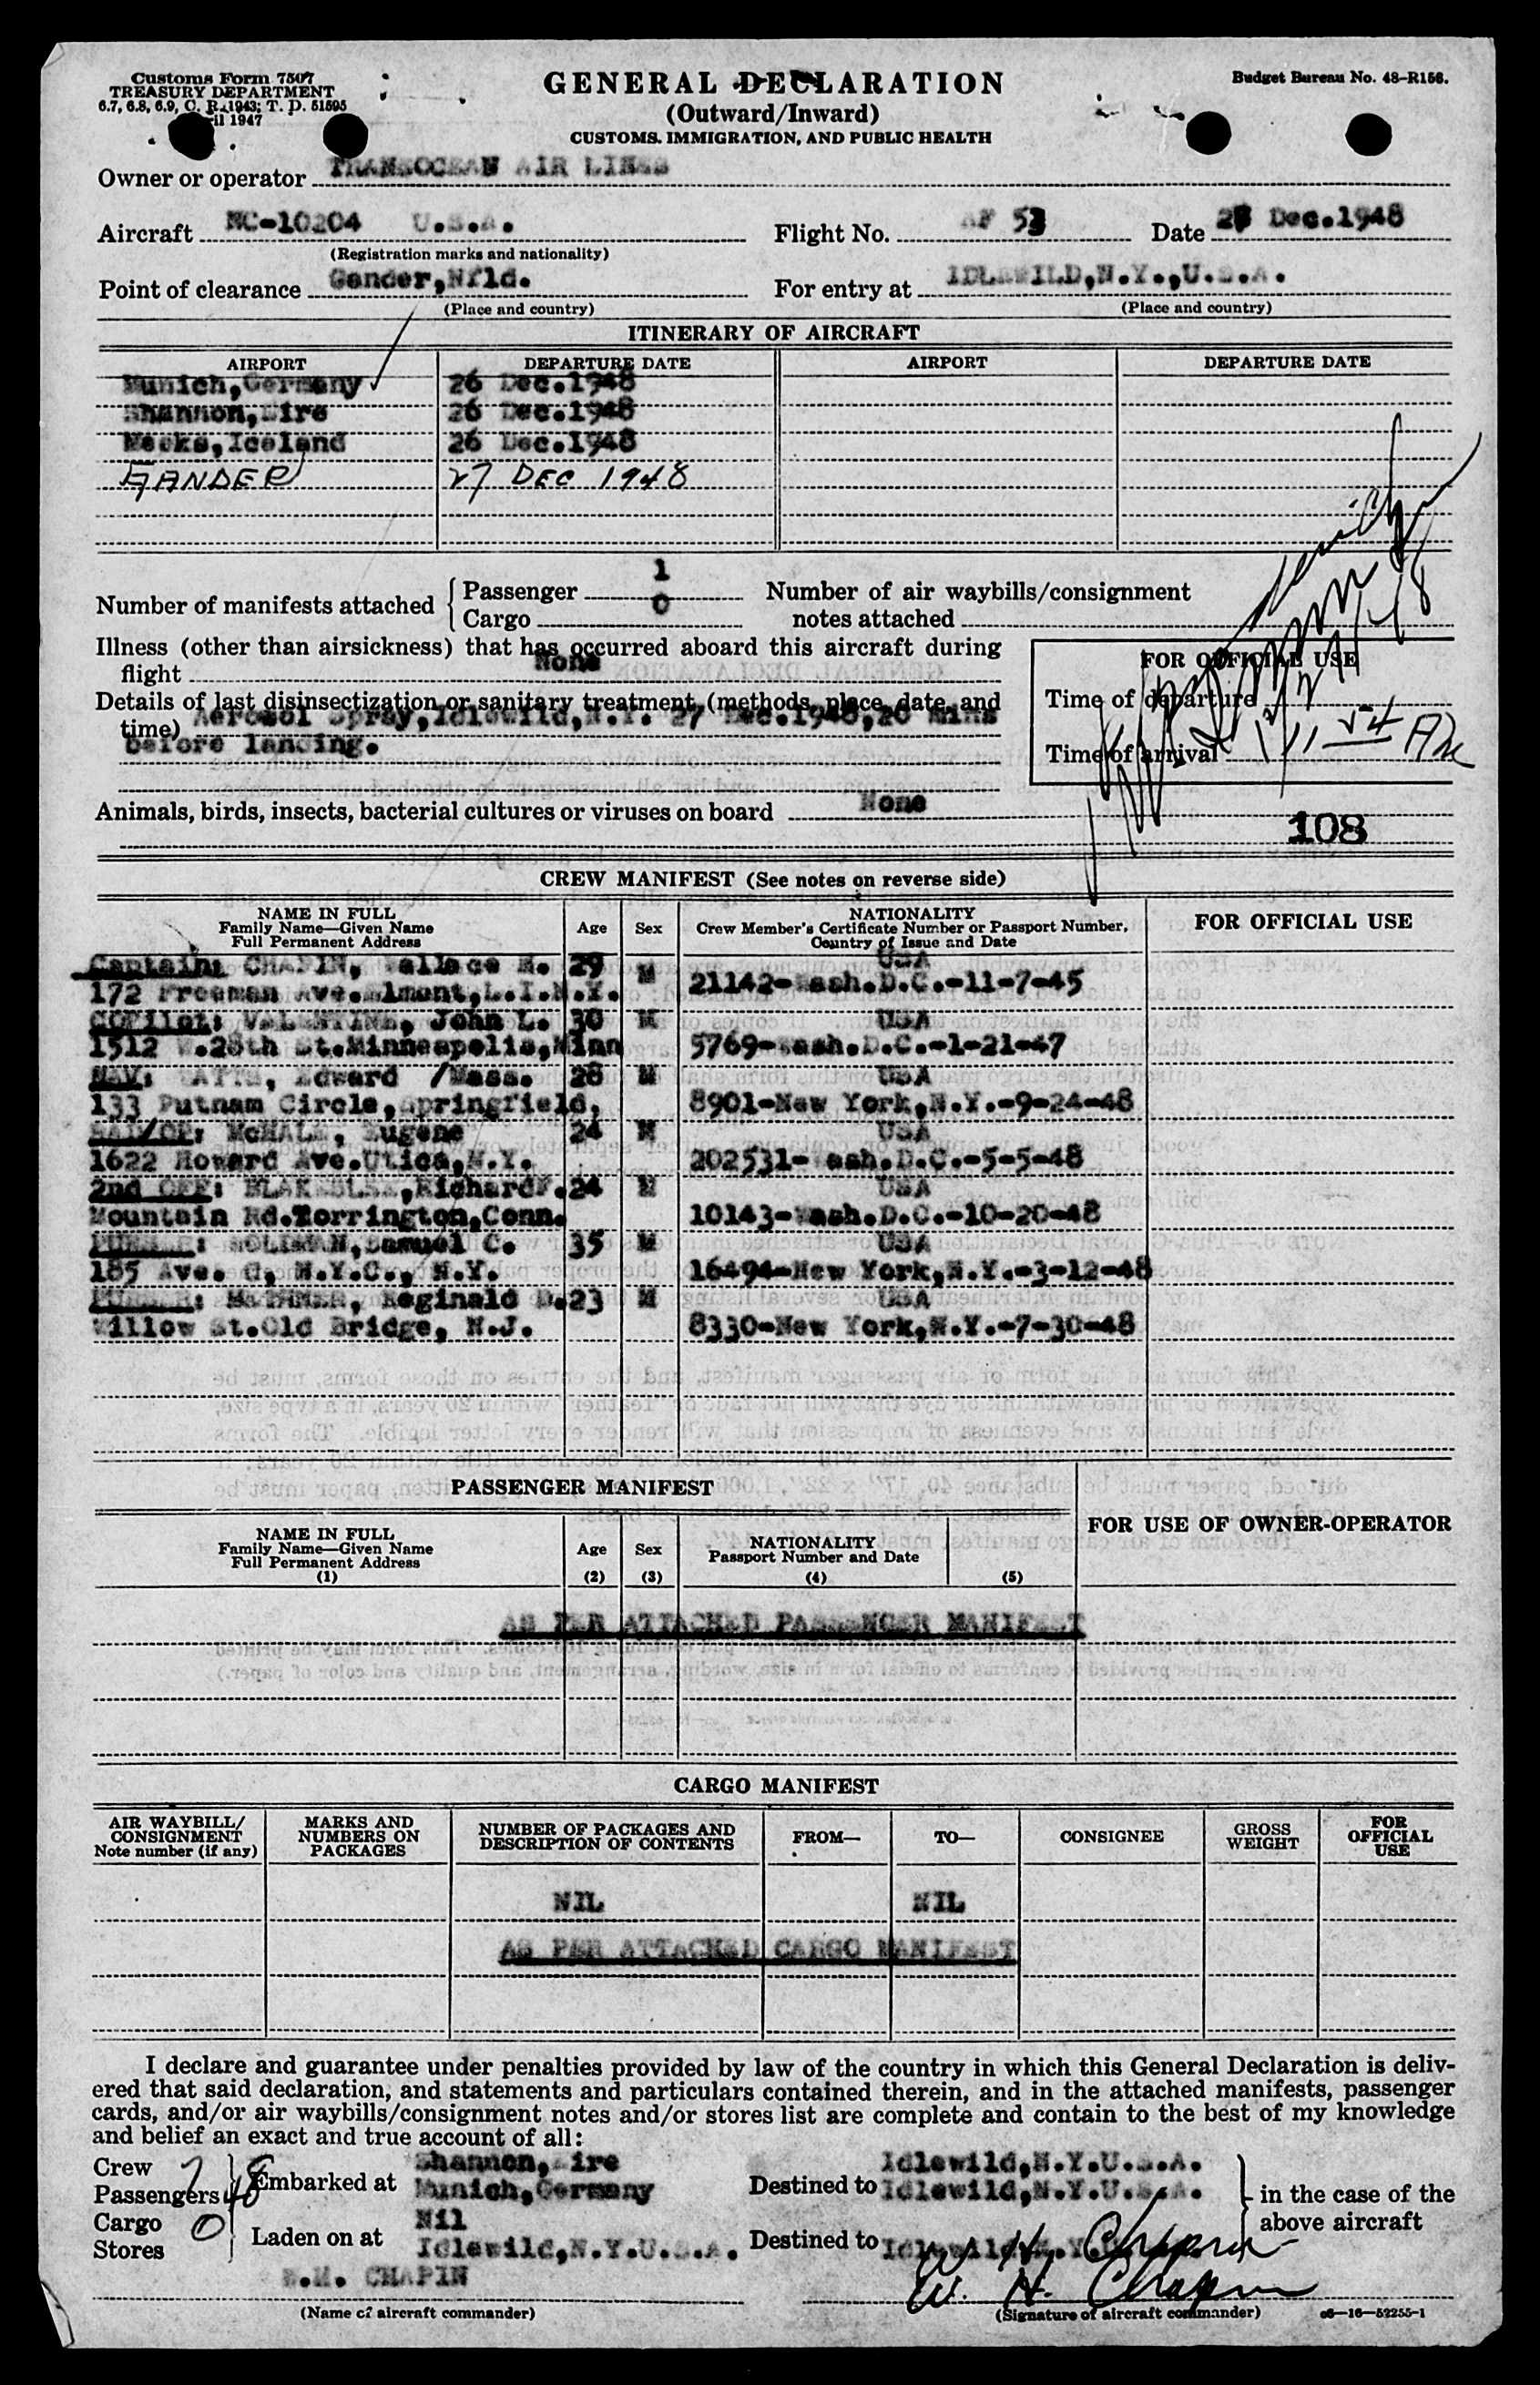 Customs Form 7507
TREASURY DEPARTMENT
6.7, 6.8, 6.9, C. R. 1943; T. D. 51595
il 1947
GENERAL DECLARATION
(Outward/Inward)
CUSTOMS, IMMIGRATION, AND PUBLIC HEALTH
Budget Bureau No. 48-R156.
Owner or operator TRANSOCEAN AIR LINES
Aircraft NC-10204 U.S.A. Flight No. AF 53 Date 27 Dec.1948
(Registration marks and nationality)
Point of clearance Gander,Nfld. For entry at IDLEWILD,N.Y.,U.S.A.
(Place and country) (Place and country)
ITINERARY OF AIRCRAFT
AIRPORT DEPARTURE DATE AIRPORT DEPARTURE DATE
Munich,Germany 26 Dec.1948
Shannon,Eire 26 Dec.1948
Meeks,Iceland 26 Dec.1948
GANDER 27 DEC 1948
Number of manifests attached Passenger 1 Number of air waybills/consignment
Cargo 0 notes attached
Illness (other than airsickness) that has occurred aboard this aircraft during
flight None
Details of last disinsectization or sanitary treatment (methods, place, date, and
time) Aerosol Spray,Idlewild,N.Y. 27 Dec.1948,20 mins
before landing.
FOR OFFICIAL USE
Time of departure
Time of arrival 11 54 AM
Animals, birds, insects, bacterial cultures or viruses on board None
108
CREW MANIFEST (See notes on reverse side)
NAME IN FULL
Family Name—Given Name
Full Permanent Address
Age Sex
NATIONALITY
Crew Member's Certificate Number or Passport Number,
Country of Issue and Date
FOR OFFICIAL USE
Captain: CHAPIN, Wallace H. 29 M USA
172 Freeman Ave.Elmont,L.I.N.Y. 21142-Wash.D.C.-11-7-45
COPilot: VALENTINE, John L. 30 M USA
1512 W.28th St.Minneapolis,Minn 5769-Wash.D.C.-1-21-47
NAV: Edward /Mass. 28 M USA
133 Putnam Circle,Springfield, 8901-New York,N.Y.-9-24-48
RAD/OP: McHALE, Eugene 24 M USA
1622 Howard Ave.Utica,N.Y. 202531-Wash.D.C.-5-5-48
2nd OFF: BLAKESLEE,RichardF. 24 M USA
Mountain Rd.Torrington,Conn. 10143-Wash.D.C.-10-20-48
PURSER: Samuel C. 35 M USA
185 Ave. C, N.Y.C., N.Y. 16494-New York,N.Y.-3-12-48
PURSER: Reginald D. 23 M USA
Willow St.Old Bridge, N.J. 8330-New York,N.Y.-7-30-48
PASSENGER MANIFEST
FOR USE OF OWNER-OPERATOR
NAME IN FULL
Family Name—Given Name
Full Permanent Address
(1)
Age
(2)
Sex
(3)
NATIONALITY
Passport Number and Date
(4) (5)
AS PER ATTACHED PASSENGER MANIFEST
CARGO MANIFEST
AIR WAYBILL/
CONSIGNMENT
Note number (if any)
MARKS AND
NUMBERS ON
PACKAGES
NUMBER OF PACKAGES AND
DESCRIPTION OF CONTENTS
FROM—
TO—
CONSIGNEE
GROSS
WEIGHT
FOR
OFFICIAL
USE
NIL NIL
AS PER ATTACHED CARGO MANIFEST
I declare and guarantee under penalties provided by law of the country in which this General Declaration is deliv-
ered that said declaration, and statements and particulars contained therein, and in the attached manifests, passenger
cards, and/or air waybills/consignment notes and/or stores list are complete and contain to the best of my knowledge
and belief an exact and true account of all:
Crew 7 Shannon,Eire Idlewild,N.Y.U.S.A.
Passengers 48 Embarked at Munich,Germany Destined to Idlewild,N.Y.U.S.A. in the case of the
Cargo 0 Nil above aircraft
Stores Laden on at Idlewild,N.Y.U.S.A. Destined to Idlewild,N.Y. W. H. Chapin
W.H. CHAPIN W. H. Chapin
(Name of aircraft commander) (Signature of aircraft commander) c6—16—52255-1